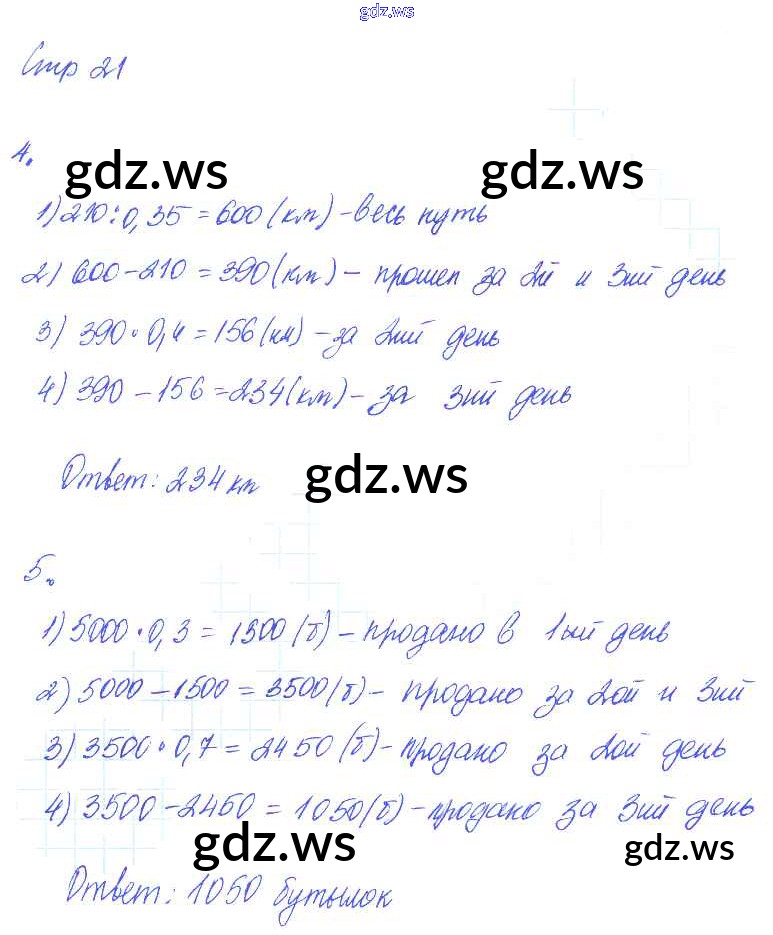 gdz.ws
Стр 21
4.
gdz.ws gdz.ws
1) 210:0,35=600(км)-весь путь
2) 600-210=390(км)- прошел за 2й и 3ий день
3) 390·0,4=156(км)-за 2ий день
4) 390-156=234(км)-за 3ий день
Ответ: 234 км
gdz.ws
5.
1) 5000·0,3=1500(б)-продано в 1ый день
2) 5000-1500=3500(б)- продано за 2ой и 3ий
3) 3500·0,7=2450(б)-продано за 2ой день
4) 3500-2450=1050(б)-продано за 3ий день
gdz.ws gdz.ws
Ответ: 1050 бутылок